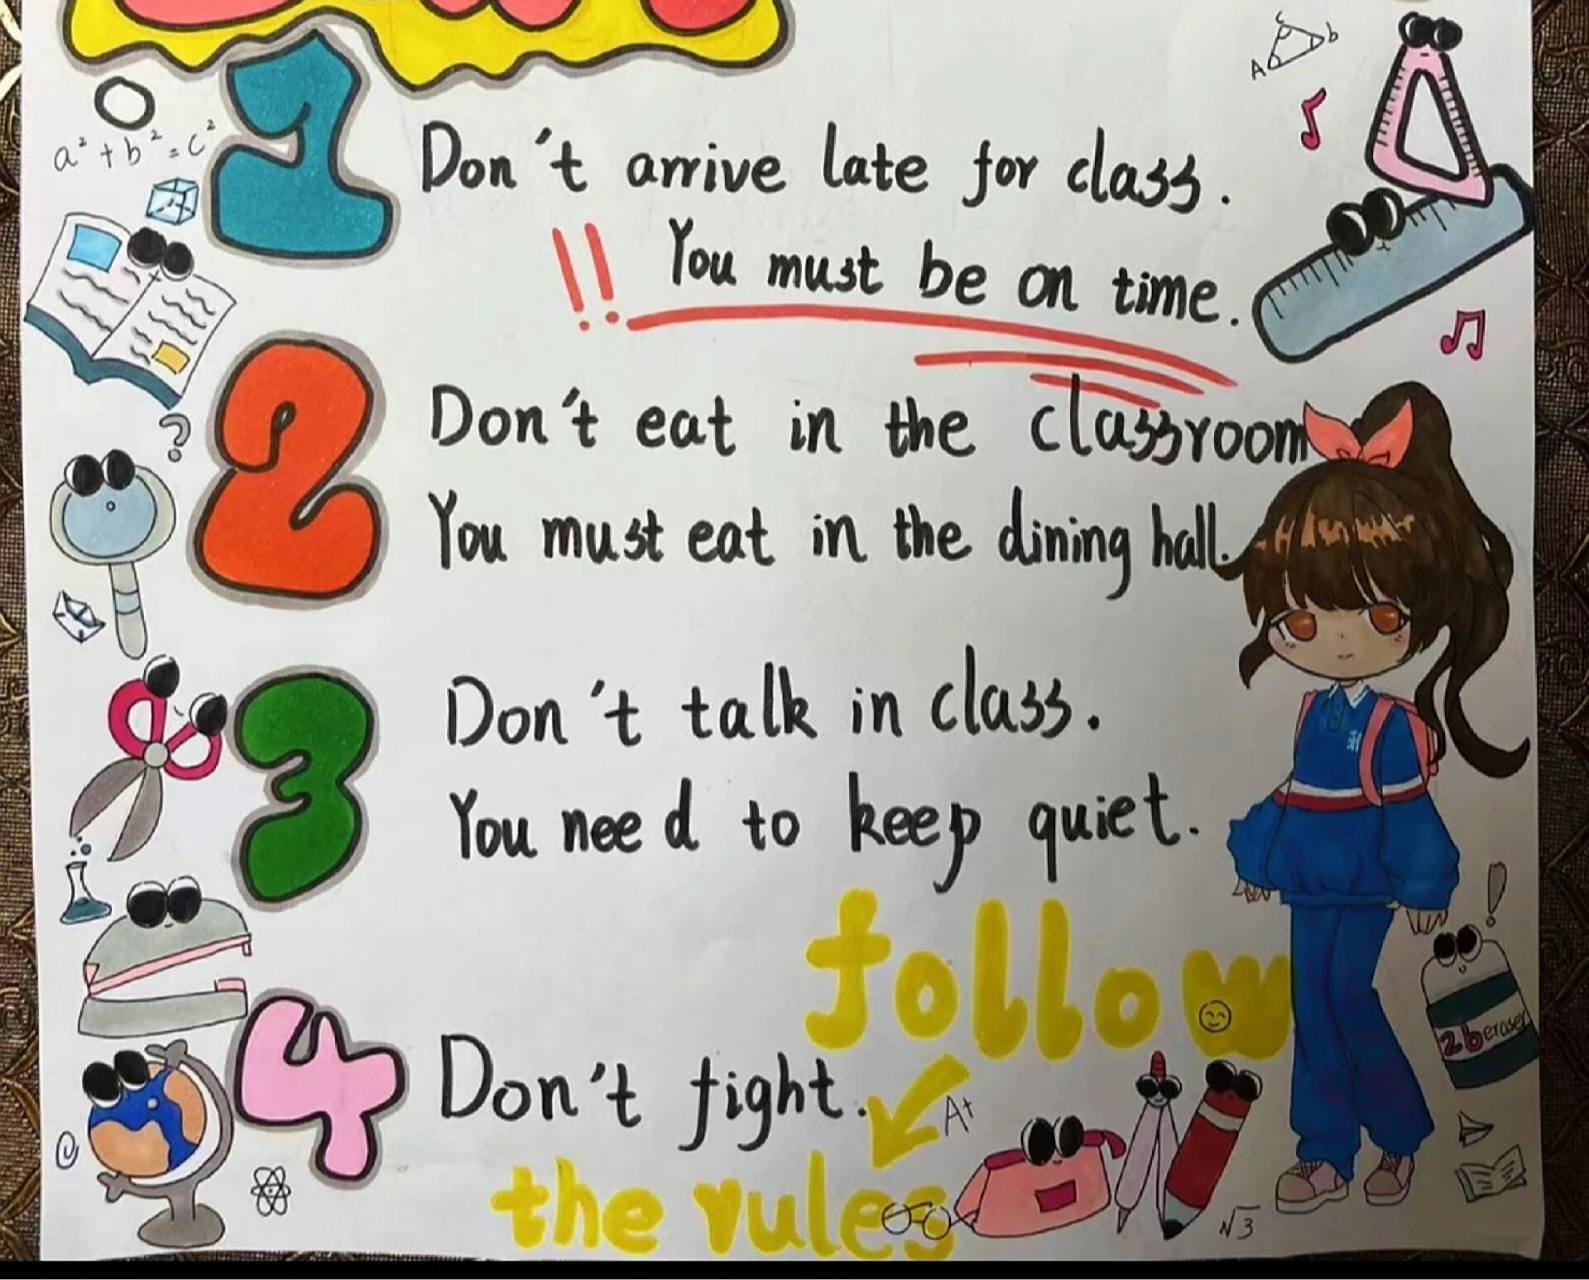 a² + b² = c²
A
b
Don't arrive late for class.
!! You must be on time.
Don't eat in the classroom
?
You must eat in the dining hall.
Don't talk in class.
You need to keep quiet.
follow
!
2b eraser
Don't fight.
A+
the rules
√3
1
2
3
4